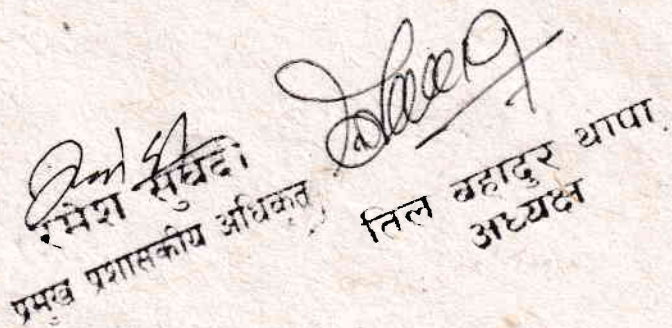 रमेश सुवेदी
प्रमुख प्रशासकीय अधिकृत
तिल बहादुर थापा
अध्यक्ष